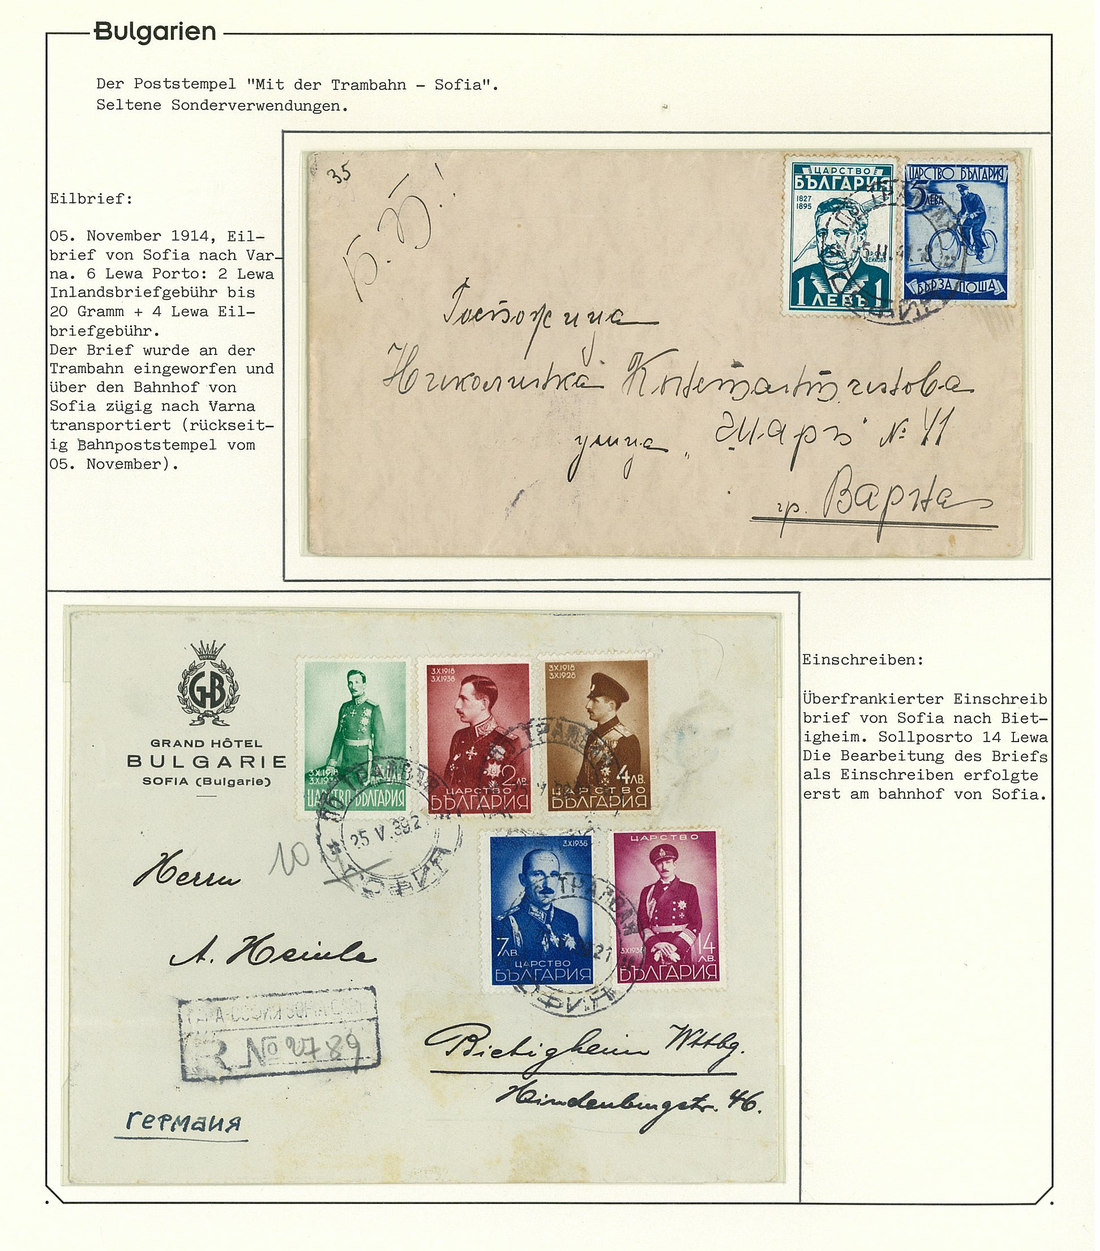 Bulgarien
Der Poststempel "Mit der Trambahn – Sofia".
Seltene Sonderverwendungen.
Eilbrief:
05. November 1914, Eil-
brief von Sofia nach Var-
na. 6 Lewa Porto: 2 Lewa
Inlandsbriefgebühr bis
20 Gramm + 4 Lewa Eil-
briefgebühr.
Der Brief wurde an der
Trambahn eingeworfen und
über den Bahnhof von
Sofia zügig nach Varna
transportiert (rückseit-
ig Bahnpoststempel vom
05. November).
35
ЦАРСТВО
БЪЛГАРИЯ
1827
1895
1 ЛЕВЪ 1
ЦАРСТВО БЪЛГАРИЯ
5 ЛЕВА
БЪРЗА ПОЩА
Госпожица
Николинка
улица „Шаръ № 41
гр. Варна
GHB
GRAND HÔTEL
BULGARIE
SOFIA (Bulgarie)
ЦАРСТВО БЪЛГАРИЯ
3X1918
3X1938
2 ЛВ.
ЦАРСТВО
БЪЛГАРИЯ
3X1918
3X1928
4 ЛВ.
ЦАРСТВО
БЪЛГАРИЯ
ПО ТРАМВАЯ
25 V.39 21
СОФИЯ
3X1938
7 ЛВ.
ЦАРСТВО
БЪЛГАРИЯ
ЦАРСТВО
3X1938
14 ЛВ.
БЪЛГАРИЯ
10
Herrn
A. Heinle
ГАРА-СОФИЯ SOFIA GARE
R No 2789
Bietigheim Wttbg.
Hindenburgstr. 46.
Германия
Einschreiben:
Überfrankierter Einschreib
brief von Sofia nach Biet-
igheim. Sollposrto 14 Lewa
Die Bearbeitung des Briefs
als Einschreiben erfolgte
erst am bahnhof von Sofia.